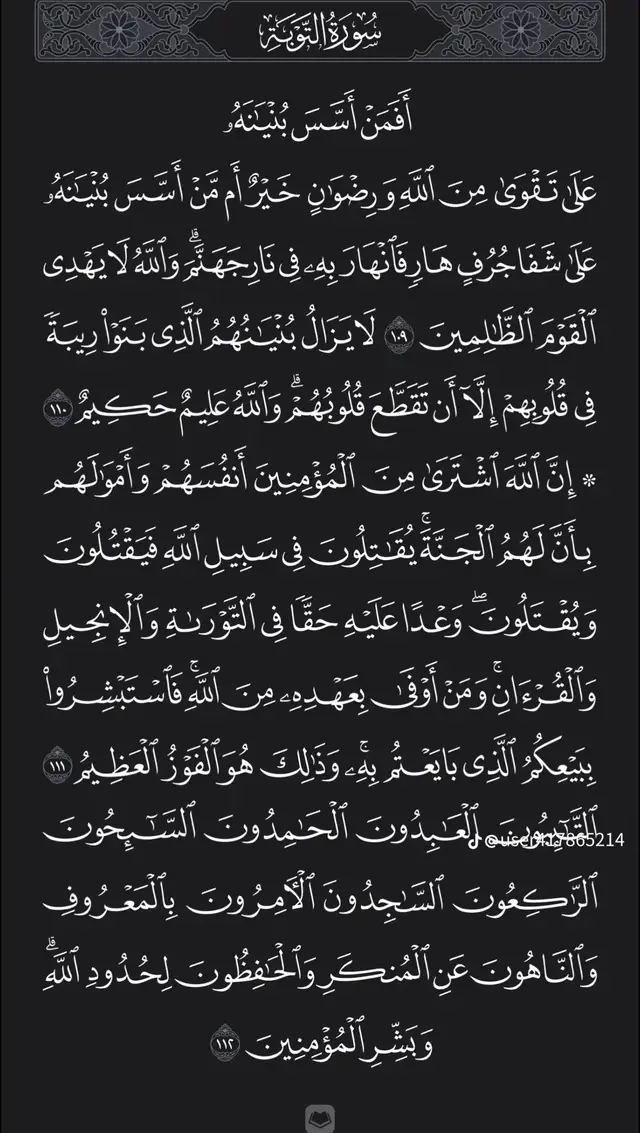 سُورَةُ التَّوۡبَةِ
أَفَمَنۡ أَسَّسَ بُنۡيَٰنَهُۥ
عَلَىٰ تَقۡوَىٰ مِنَ ٱللَّهِ وَرِضۡوَٰنٍ خَيۡرٌ أَم مَّنۡ أَسَّسَ بُنۡيَٰنَهُۥ
عَلَىٰ شَفَا جُرُفٍ هَارٖ فَٱنۡهَارَ بِهِۦ فِي نَارِ جَهَنَّمَۗ وَٱللَّهُ لَا يَهۡدِي
ٱلۡقَوۡمَ ٱلظَّٰلِمِينَ ١٠٩ لَا يَزَالُ بُنۡيَٰنُهُمُ ٱلَّذِي بَنَوۡاْ رِيبَةٗ
فِي قُلُوبِهِمۡ إِلَّآ أَن تَقَطَّعَ قُلُوبُهُمۡۗ وَٱللَّهُ عَلِيمٌ حَكِيمٌ ١١٠
۞ إِنَّ ٱللَّهَ ٱشۡتَرَىٰ مِنَ ٱلۡمُؤۡمِنِينَ أَنفُسَهُمۡ وَأَمۡوَٰلَهُم
بِأَنَّ لَهُمُ ٱلۡجَنَّةَۚ يُقَٰتِلُونَ فِي سَبِيلِ ٱللَّهِ فَيَقۡتُلُونَ
وَيُقۡتَلُونَۖ وَعۡدًا عَلَيۡهِ حَقّٗا فِي ٱلتَّوۡرَىٰةِ وَٱلۡإِنجِيلِ
وَٱلۡقُرۡءَانِۚ وَمَنۡ أَوۡفَىٰ بِعَهۡدِهِۦ مِنَ ٱللَّهِۚ فَٱسۡتَبۡشِرُواْ
بِبَيۡعِكُمُ ٱلَّذِي بَايَعۡتُم بِهِۦۚ وَذَٰلِكَ هُوَ ٱلۡفَوۡزُ ٱلۡعَظِيمُ ١١١
ٱلتَّٰٓئِبُونَ ٱلۡعَٰبِدُونَ ٱلۡحَٰمِدُونَ ٱلسَّٰٓئِحُونَ
@user417865214
ٱلرَّٰكِعُونَ ٱلسَّٰجِدُونَ ٱلۡأٓمِرُونَ بِٱلۡمَعۡرُوفِ
وَٱلنَّاهُونَ عَنِ ٱلۡمُنكَرِ وَٱلۡحَٰفِظُونَ لِحُدُودِ ٱللَّهِۗ
وَبَشِّرِ ٱلۡمُؤۡمِنِينَ ١١٢